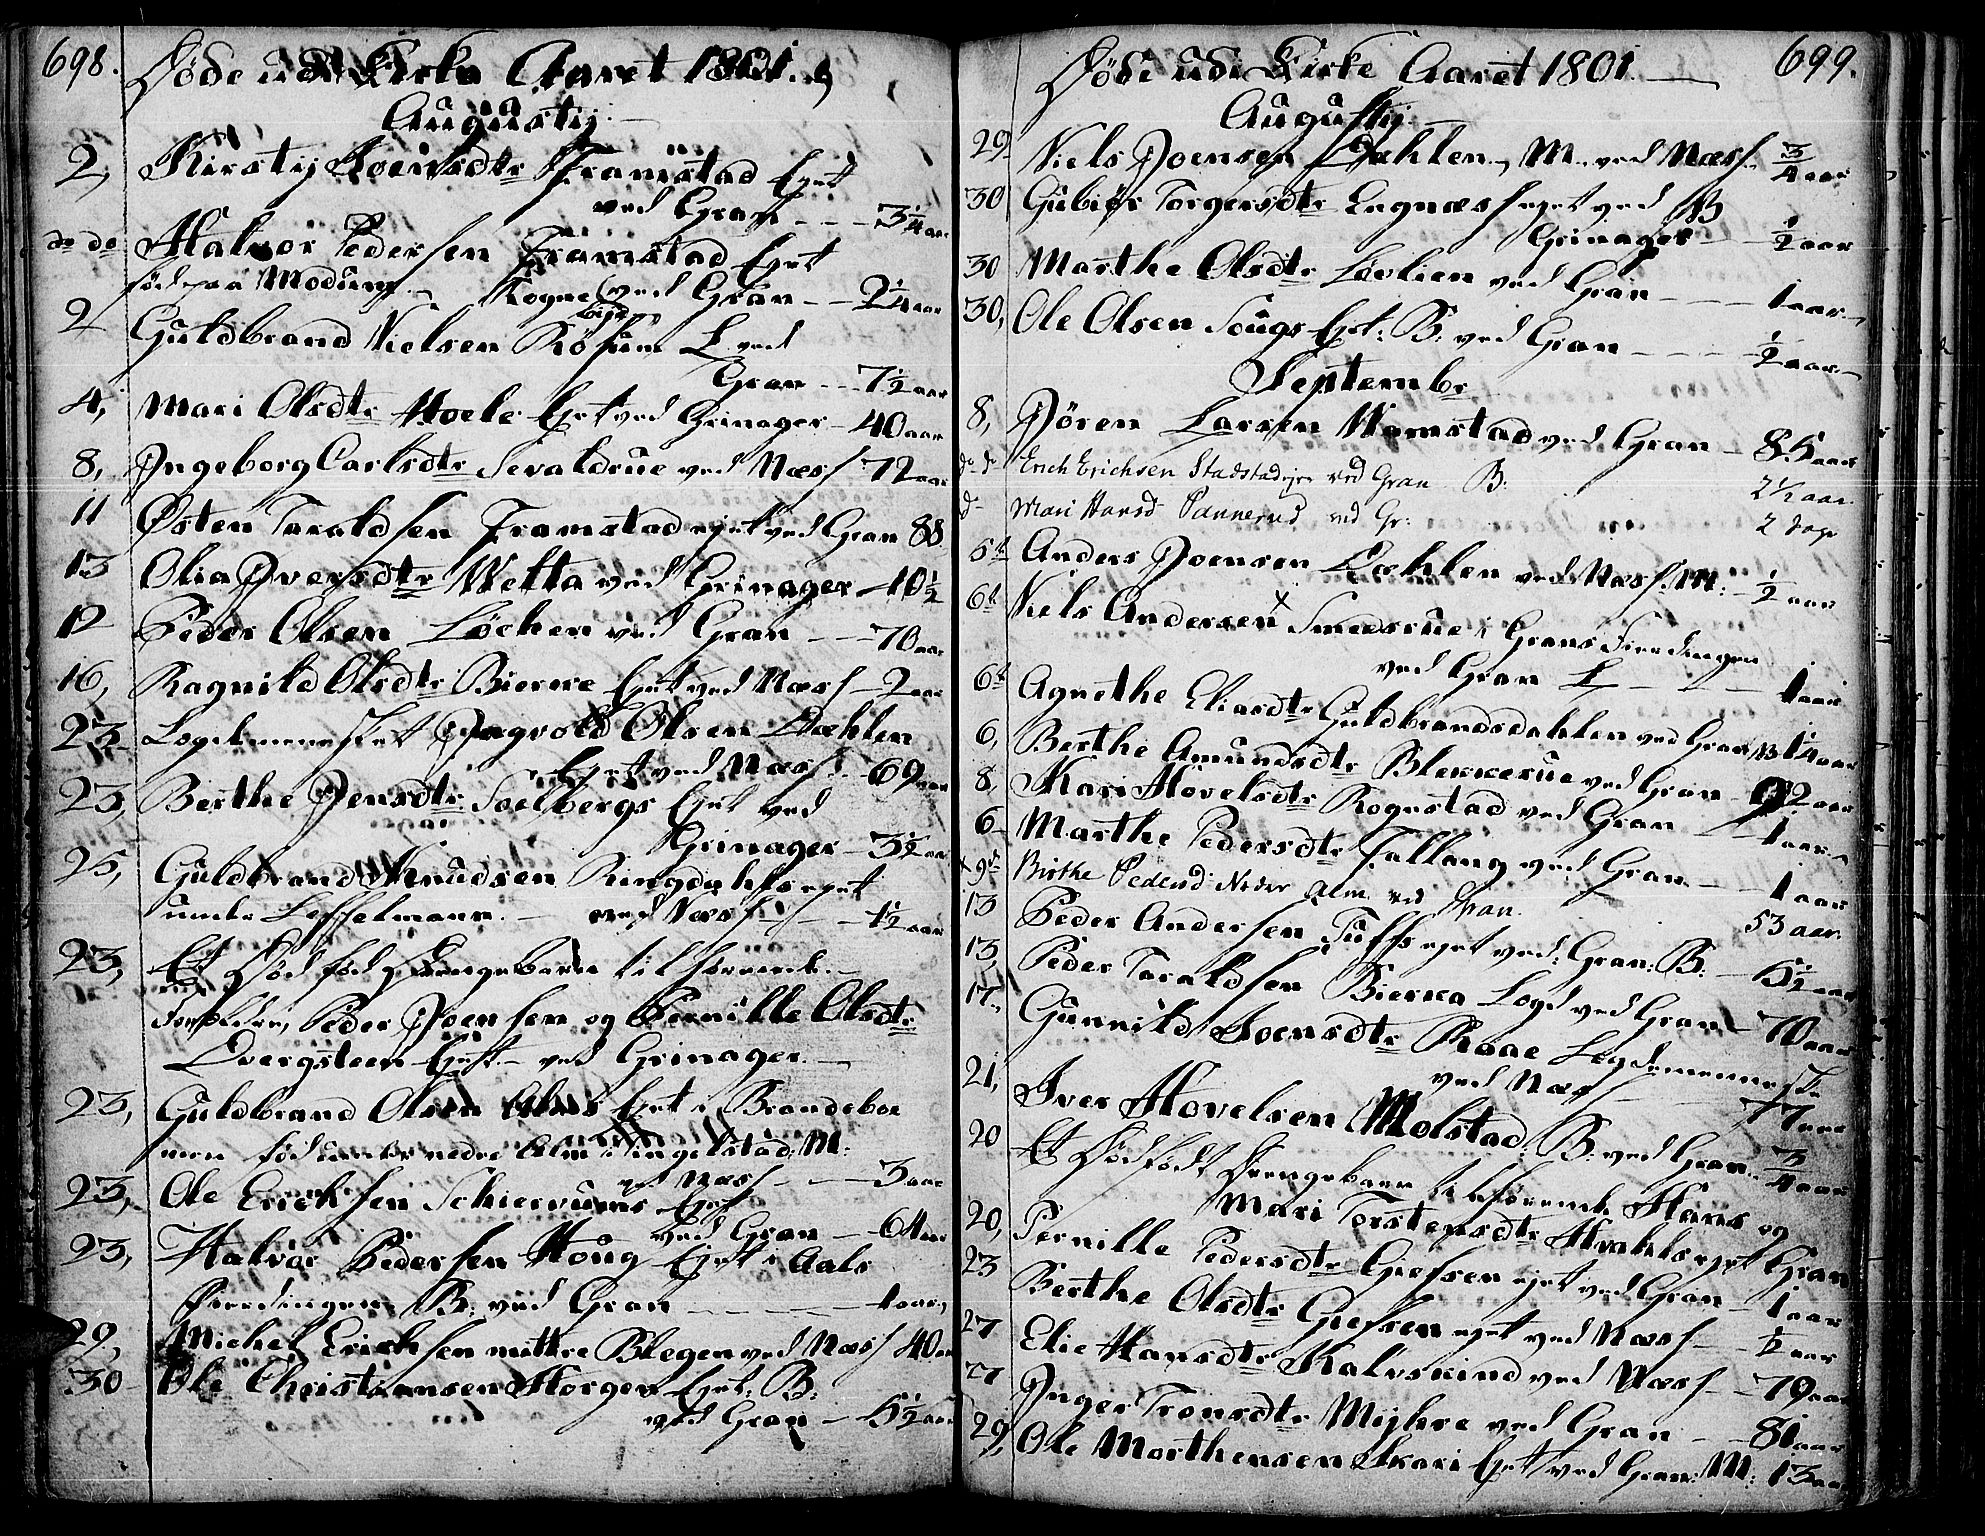 698.
Døde udi Kirke Aaret 1801.
Augustij.
2, Kirstij Joensdtr Framstad Eyet
ved Gran - - - 3 1/4 aar
do do Halvor Pedersen Framstad Eyet
fød paa Modum. Sogne ved Gran - - 2 1/4 aar
2 Guldbrand Nielsen Røsum L. ved
Gran - - 7 1/2 aar
4, Mari Olsdtr Hoele Eyet ved Grinager - 40 aar
8, Ingeborg Carlsdtr Sevaldrue ved Næss 72 aar
11 Østen Taraldsen Framstad eyet ved Gran 88
13 Olia Iversdtr Wetta ved Grinager - 10 1/2
12 Peder Olsen Løchen ved Gran - - 70 aar
16, Ragnild Olsdtr Bierke Eyet ved Næss - 2 aar
23 Legdemennesket Ingvold Olsen Dæhlen
Eyet ved Næss - 69 aar
23, Berthe Jensdtr Soelbergs Eyet ved
Grinager - 3 1/2 aar
25, Guldbrand Knudsen Ringdahls eyet
under Leffelmann. - ved Næss - - 1 1/2 aar
23, Et Død fød Drengebarn tilhørende
Forældre, Peder Joensen og Pernille Olsdtr
Dvergsteen Eyet - ved Grinager.
23, Guldbrand Olsen Alms Eyet i Brandeboe
men fød under nedre Alm i Tingelstad: M:
ved Næss - - 3 aar
23, Ole Erichsen Schiervums Eyet
ved Gran - 64 aar
23, Halvor Pedersen Houg Eyet i Aals
Fierdingen B: ved Gran - - - - 1 aar,
29, Michel Erichsen mittre Blegen ved Næss 40 aar
30 Ole Christiansen Horgen Eyet: B:
ved Gran - 5 1/2 aar
699.
Døde udi Kirke Aaret 1801.
Augustij.
29 Niels Joensen Dæhlen, M. ved Næss. 3/4 aar
30 Gubiør Torgersdtr Legnæss eyet ved B
Grinager - 1/2 aar
30 Marthe Olsdtr Løvlien ved Gran - - - 1 aar
30, Ole Olsen Sougs Eyet: B: ved Gran - - - - 1/2 aar
Septembr
8, Sören Larsen Wamstad ved Gran - 85 aar
do do Erich Erichsen Stadstad eyer ved Gran B: 2 1/2 aar.
d- Mari Hansd Dannerud ved Gr: 2 dage
5t Anders Joensen Dæhlen ved Næss M: - 1/2 aar
6t Niels Andersen Smedsrue i Grans Fierdingen
ved Gran L - - - 1 aar
6t Agnethe Eliasdtr Guldbrandsdahlen ved Gran B 14 aar
6, Berthe Amundsdtr Blekkerue ved Gran 92 aar
8, Kari Hovelsdtr Rognstad ved Gran - 1 aar
6 Marthe Pedersdtr Fallang ved Gran - - 1 aar
9d Birthe Pedersd Neder Alm ved Gran. 53 aar.
13 Peder Andersen Tuffs eyet ved: Gran: B: - 5 1/2 aar
13, Peder Taraldsen Bierka Legd ved Gran - 70 aar
17 Gunnild Joensdtr Raae Legdemenneske
ved Næss - - - 77 aar
21, Iver Hovelsen Molstad B: ved Gran - 3/4 aar
20 Et Dødfødt Drengebarn tilhørende Hans og
Mari Torstensdtr Hvahls eyet Gran
20, Pernille Pedersdtr Grefsen eyet ved Gran - 1 aar
23 Berthe Olsdtr Grefsen eyet ved Næss - 1/2 aar
27 Elie Hansdtr Kalvskind ved Næss - - 79 aar
27 Inger Tronsdtr Mijhre ved Gran - - 81 aar
29, Ole Morthensen Skari Eyet ved Gran: M: 13 aar